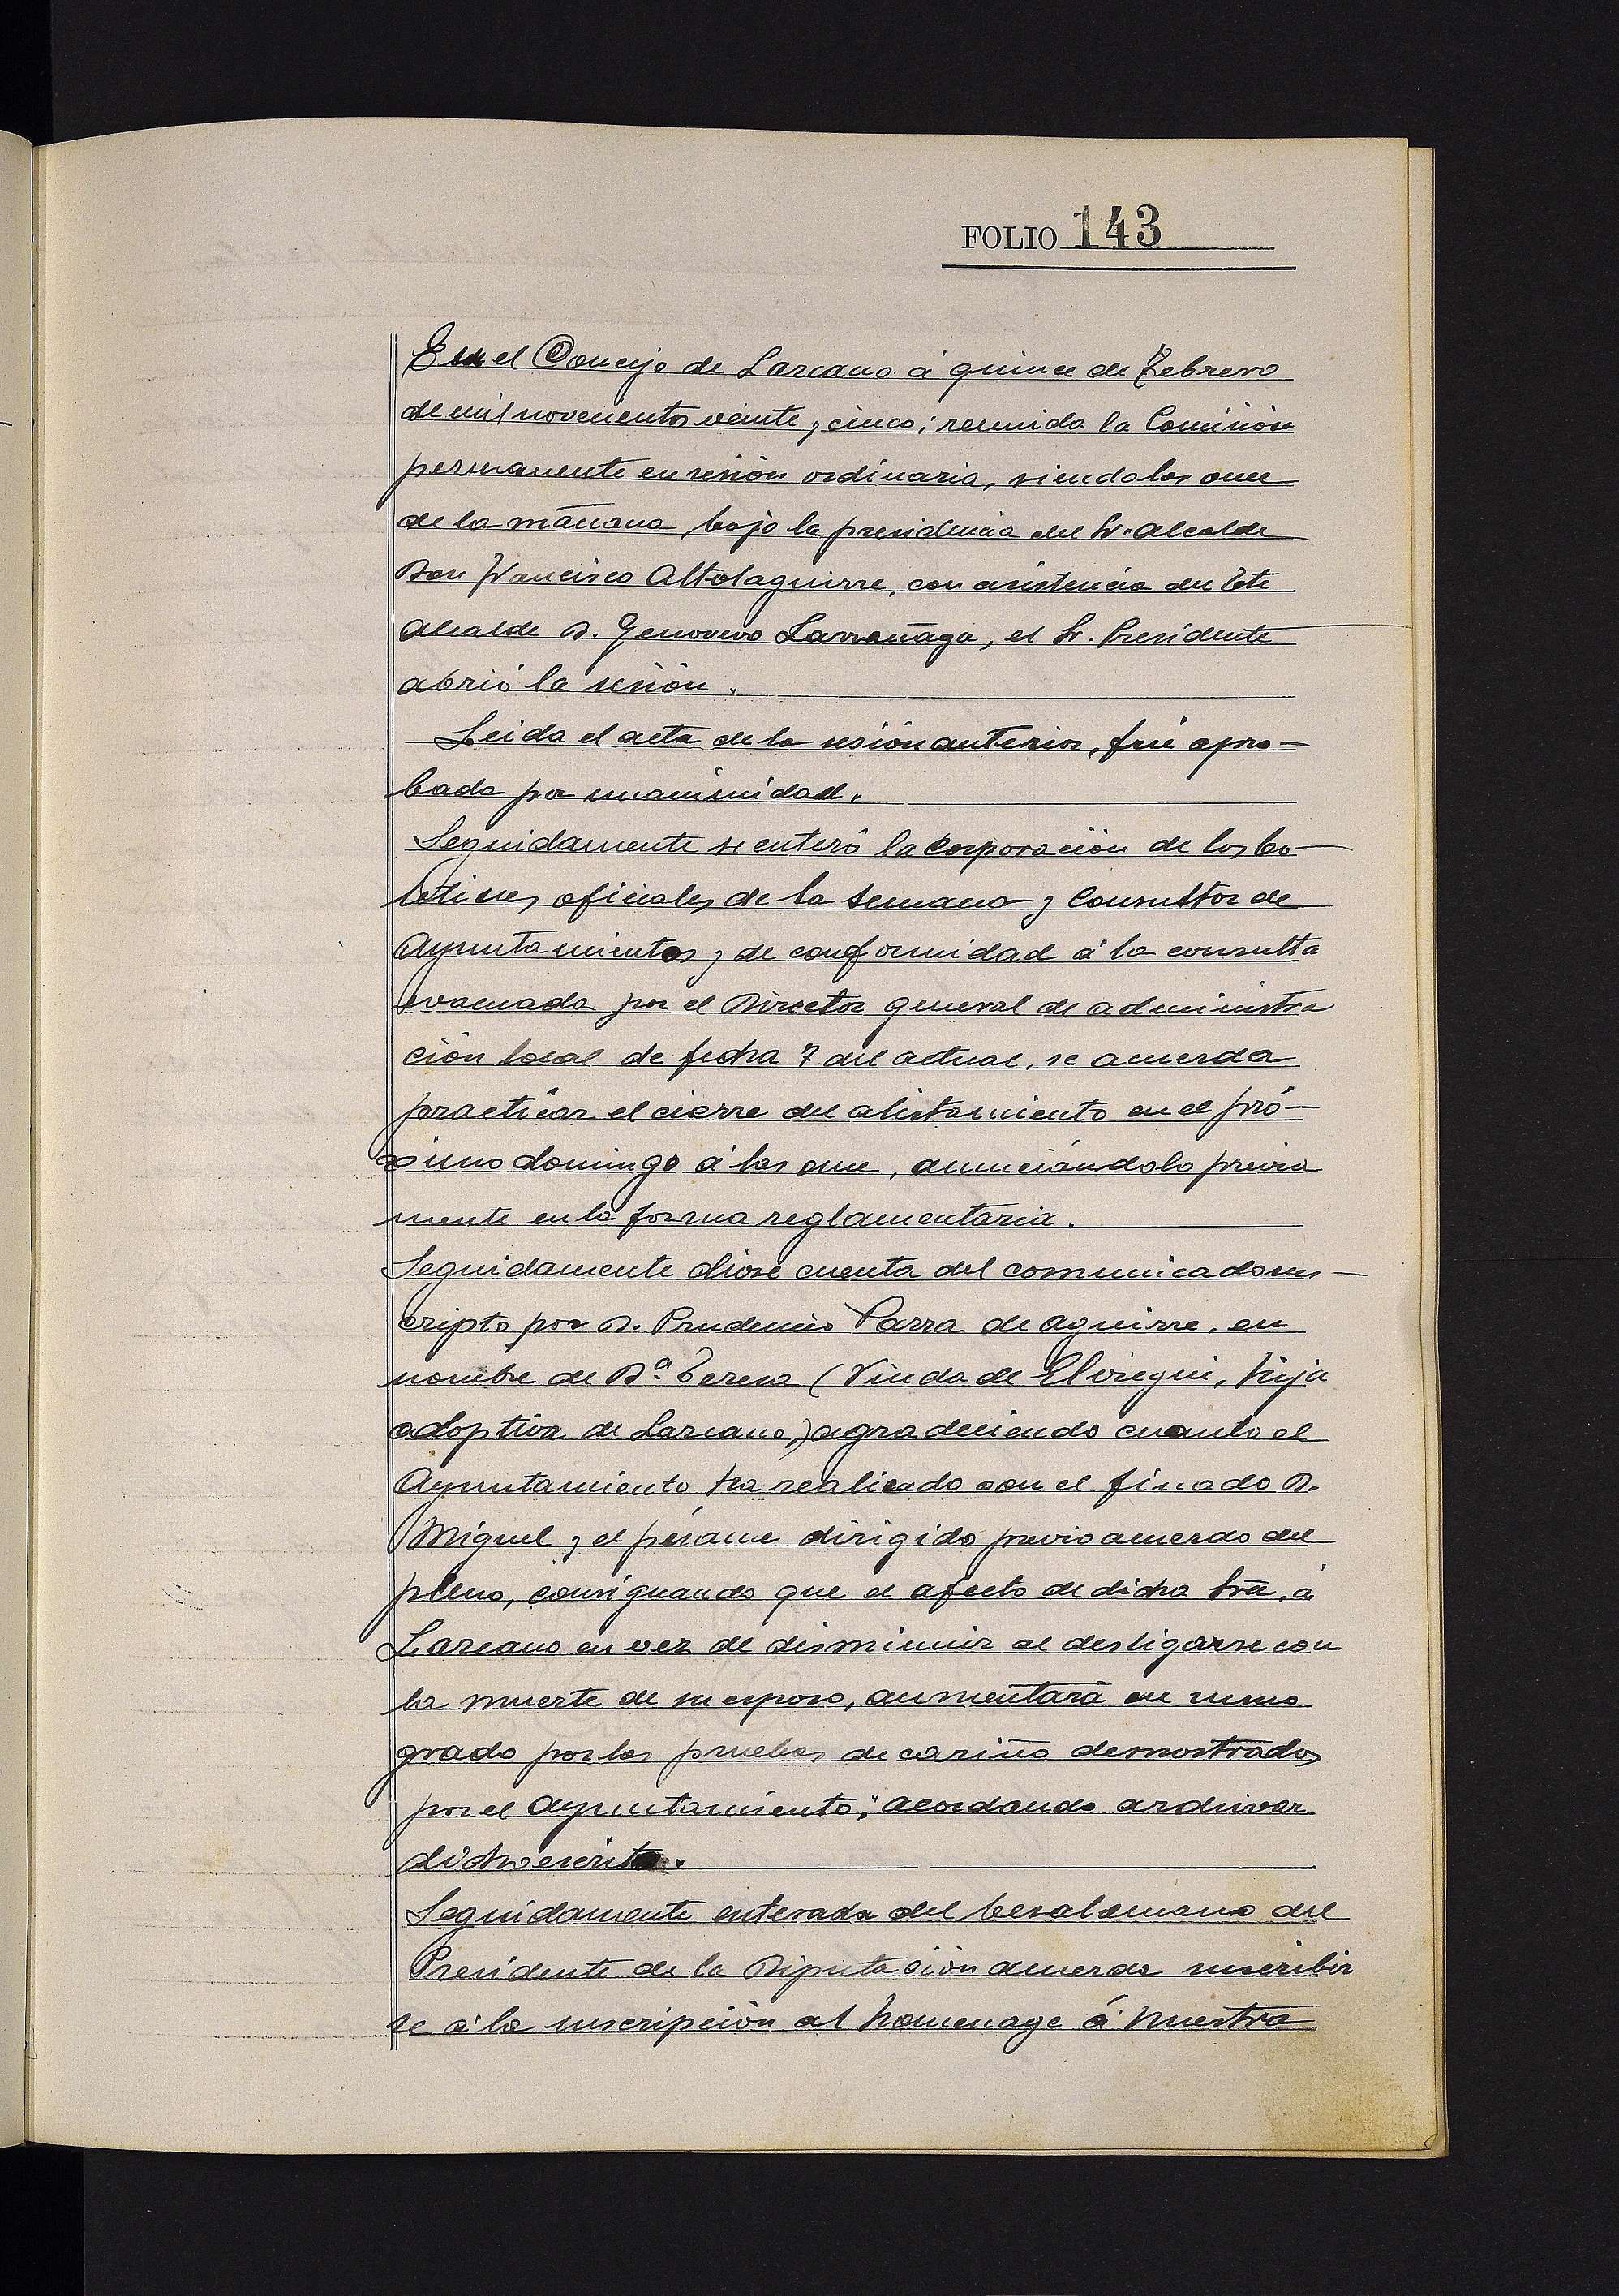 FOLIO 143
En el Concejo de Lazcano á quince de Febrero
de mil novecientos veinte y cinco; reunida la Comisión
permanente en sesión ordinaria, siendo las once
de la mañana, bajo la presidencia del Sr. Alcalde
Don Francisco Altolaguirre, con asistencia del Tte
Alcalde D. Genovevo Larrañaga, el Sr. Presidente
abrió la sesión.
Leida el acta de la sesión anterior, fué apro-
bada por unanimidad.
Seguidamente se enteró la Corporación de los bo-
letines oficiales de la semana y Consultor de
Ayuntamientos y de conformidad á la consulta
evacuada por el Director general de administra
ción local de fecha 7 del actual, se acuerda
practicar el cierre del alistamiento en el pró-
ximo domingo á las once, anunciándolo previa
mente en la forma reglamentaria.
Seguidamente dióse cuenta del comunicado sus-
cripto por D. Prudencio Parra de Aguirre, en
nombre de Dª. Teresa (Viuda de Elósegui, hija
adoptiva de Lazcano,) agradeciendo cuanto el
Ayuntamiento ha realizado con el finado D.
Miguel y el pésame dirigido previo acuerdo del
pleno, consignando que el afecto de dicha Sra. á
Lazcano en vez de disminuir al desligarse con
la muerte de su esposo, aumentará en sumo
grado por las pruebas de cariño demostradas
por el Ayuntamiento; acordando archivar
dicho escrito.
Seguidamente enterada del besalamano del
Presidente de la Diputación acuerda suscribir
se á la suscripción al homenage á Nuestra